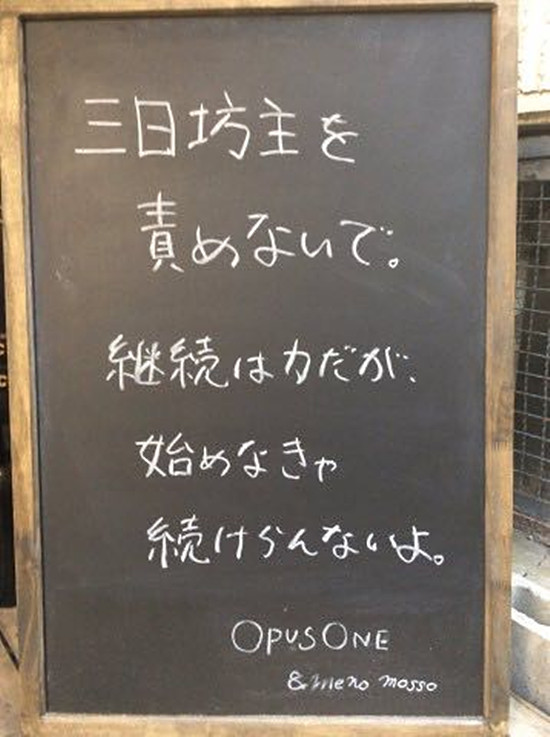 三日坊主を
責めないで。
継続は力だが、
始めなきゃ
続けらんないよ。
OPUS ONE
& meno mosso